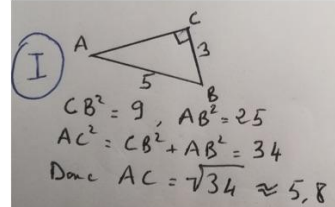 C
A
I
3
5
B
CB² = 9 , AB² = 25
AC² = CB² + AB² = 34
Donc AC = √34 ≈ 5,8